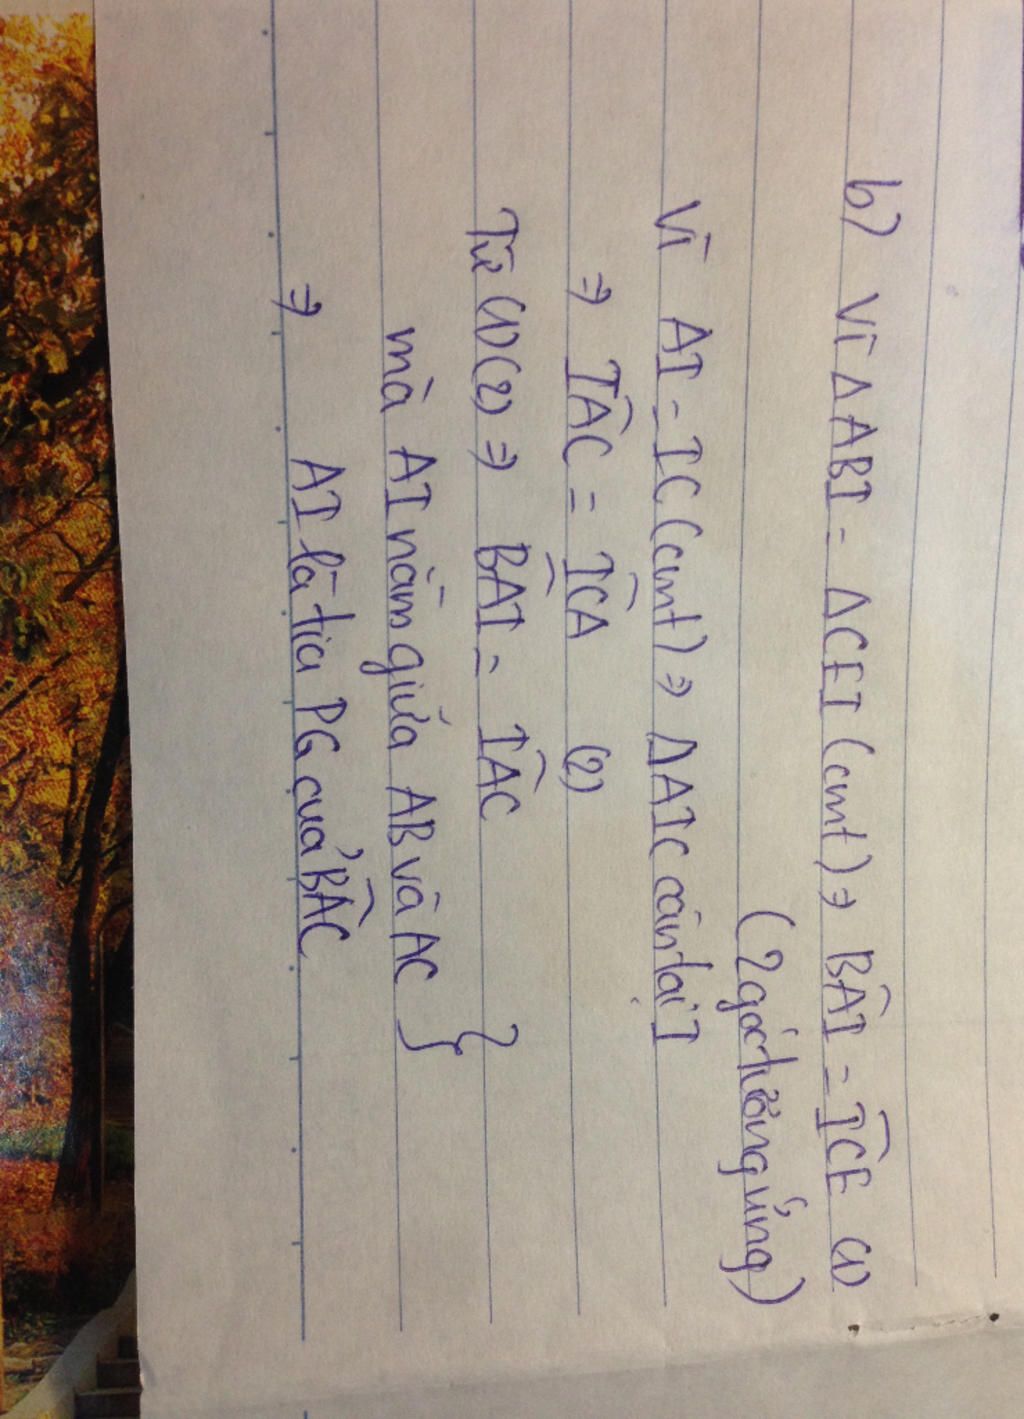 b) Vì ΔABI = ΔCEI (cmt) ⇒ B̂AI = ÎCE (1)
(2 góc tương ứng)
Vì AI = IC (cmt) ⇒ ΔAIC cân tại I
⇒ ÎAC = ÎCA (2)
Từ (1)(2) ⇒ B̂AI = ÎAC }
mà AI nằm giữa AB và AC }
⇒ AI là tia PG của B̂AC